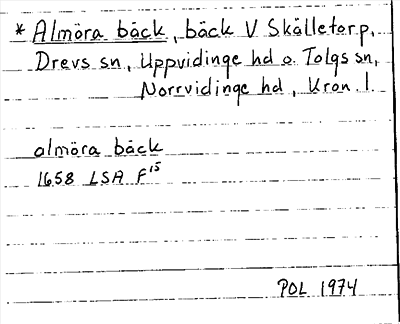 * Almöra bäck, bäck V Skälletorp,
Drevs sn, Uppvidinge hd o. Tolgs sn,
Norrvidinge hd, Kron. l.
almöra bäck
1658 LSA F¹⁵
POL 1974